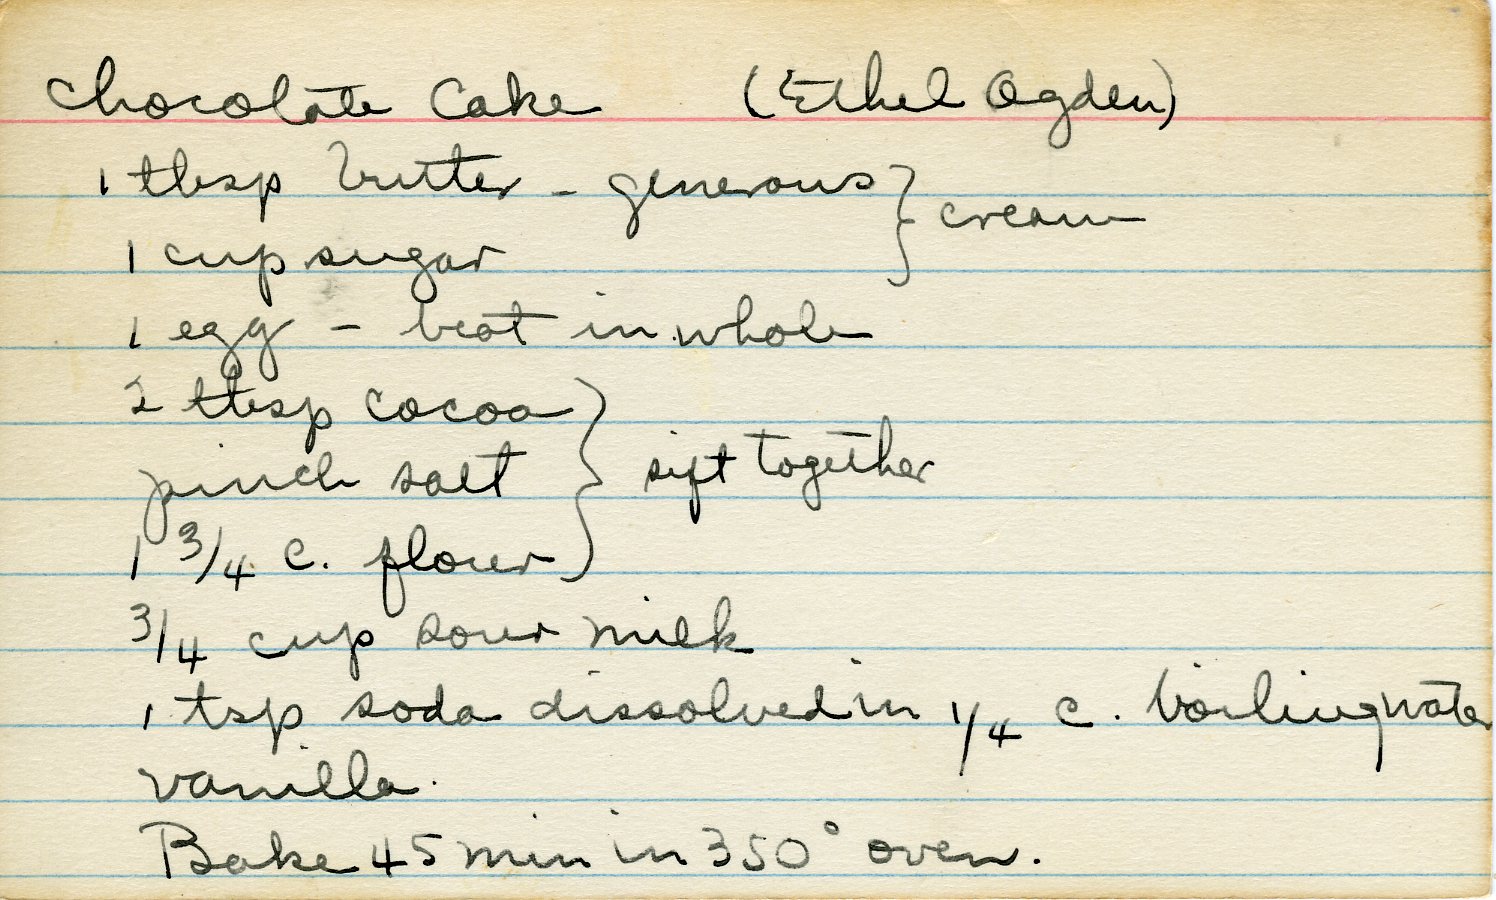 Chocolate Cake (Ethel Ogden)
1 tbsp butter - generous } cream
1 cup sugar
1 egg - beat in whole
2 tbsp cocoa
pinch salt } sift together
1 3/4 c. flour
3/4 cup sour milk
1 tsp soda dissolved in 1/4 c. boiling water
vanilla.
Bake 45 min in 350° oven.